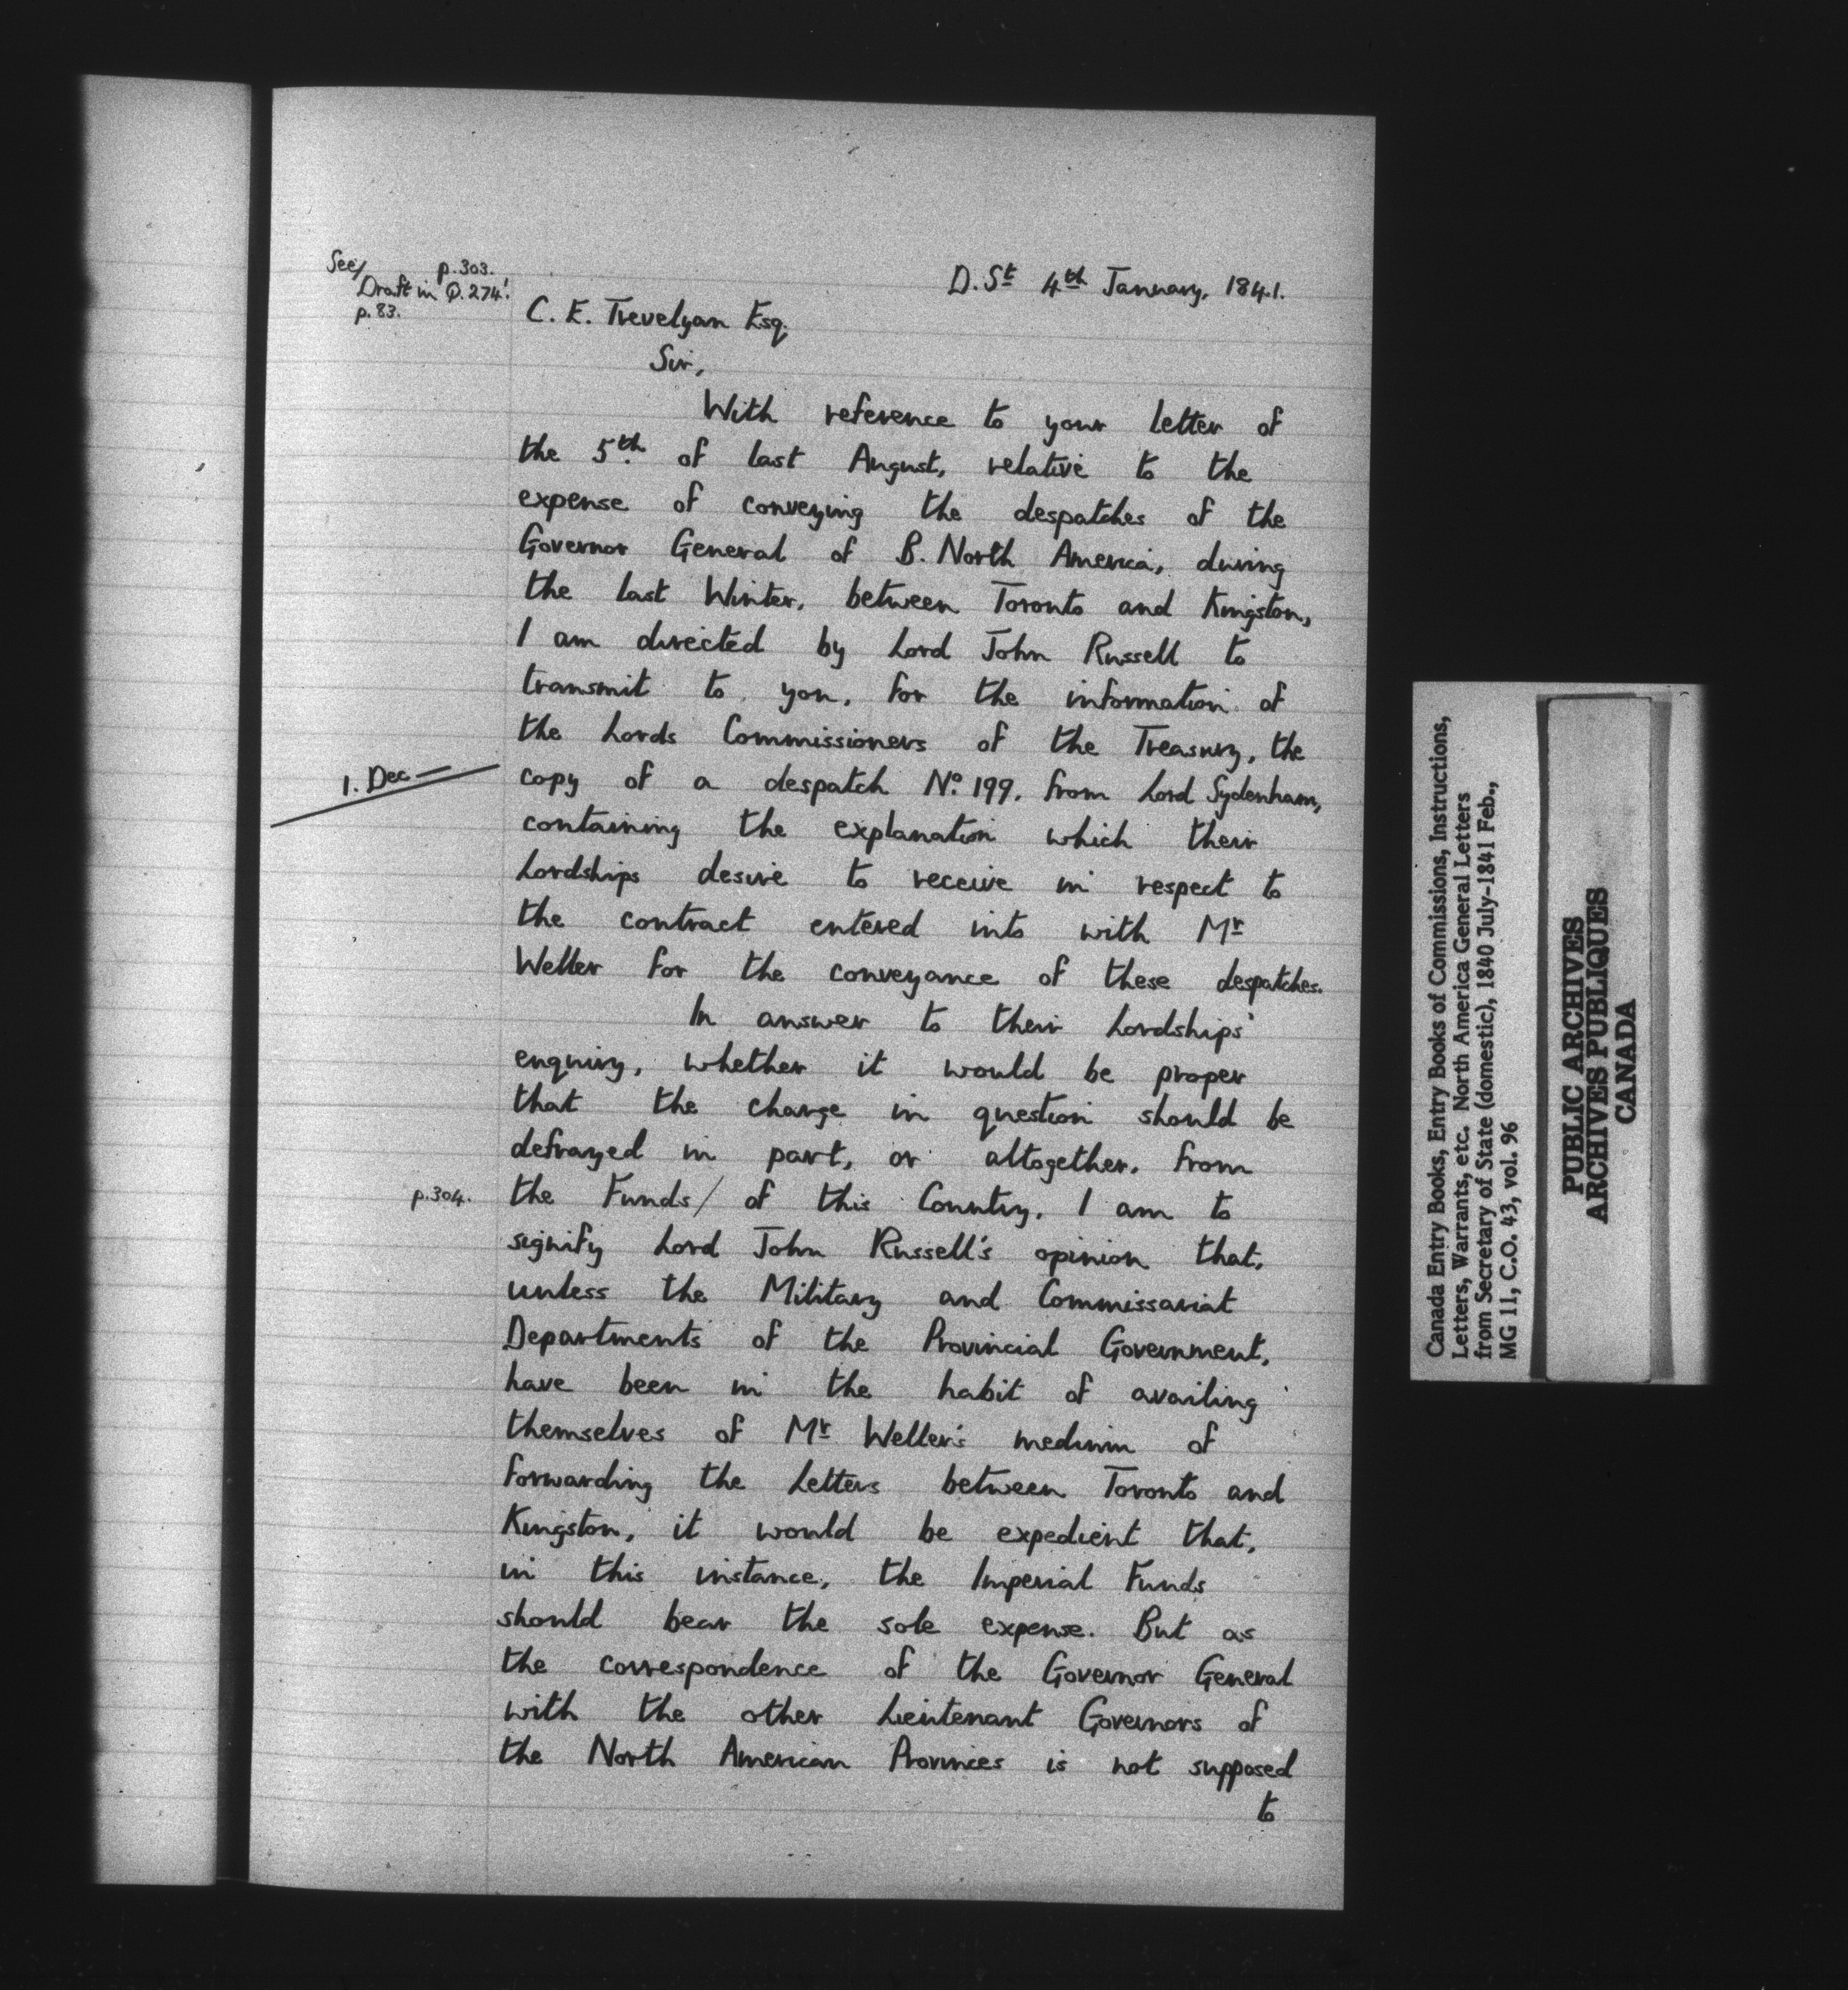 See/ p.303.
Draft in Q.274!
p.83.
D. St 4th January, 1841.
C. E. Trevelyan Esq.
Sir,
With reference to your letter of
the 5th. of last August, relative to the
expense of conveying the despatches of the
Governor General of B. North America, during
the last Winter, between Toronto and Kingston,
I am directed by Lord John Russell to
transmit to you, for the information of
the Lords Commissioners of the Treasury, the
1. Dec —
copy of a despatch No. 199, from Lord Sydenham,
containing the explanation which their
Lordships desire to receive in respect to
the contract entered into with Mr
Weller for the conveyance of these despatches.
In answer to their Lordships'
enquiry, whether it would be proper
that the charge in question should be
defrayed in part, or altogether, from
p.304.
the Funds/ of this Country, I am to
signify Lord John Russell's opinion that,
unless the Military and Commissariat
Departments of the Provincial Government,
have been in the habit of availing
themselves of Mr Weller's medium of
forwarding the Letters between Toronto and
Kingston, it would be expedient that,
in this instance, the Imperial Funds
should bear the sole expense. But as
the correspondence of the Governor General
with the other Lieutenant Governors of
the North American Provinces is not supposed
to
Canada Entry Books, Entry Books of Commissions, Instructions,
Letters, Warrants, etc. North America General Letters
from Secretary of State (domestic), 1840 July-1841 Feb.,
MG 11, C.O. 43, vol. 96
PUBLIC ARCHIVES
ARCHIVES PUBLIQUES
CANADA